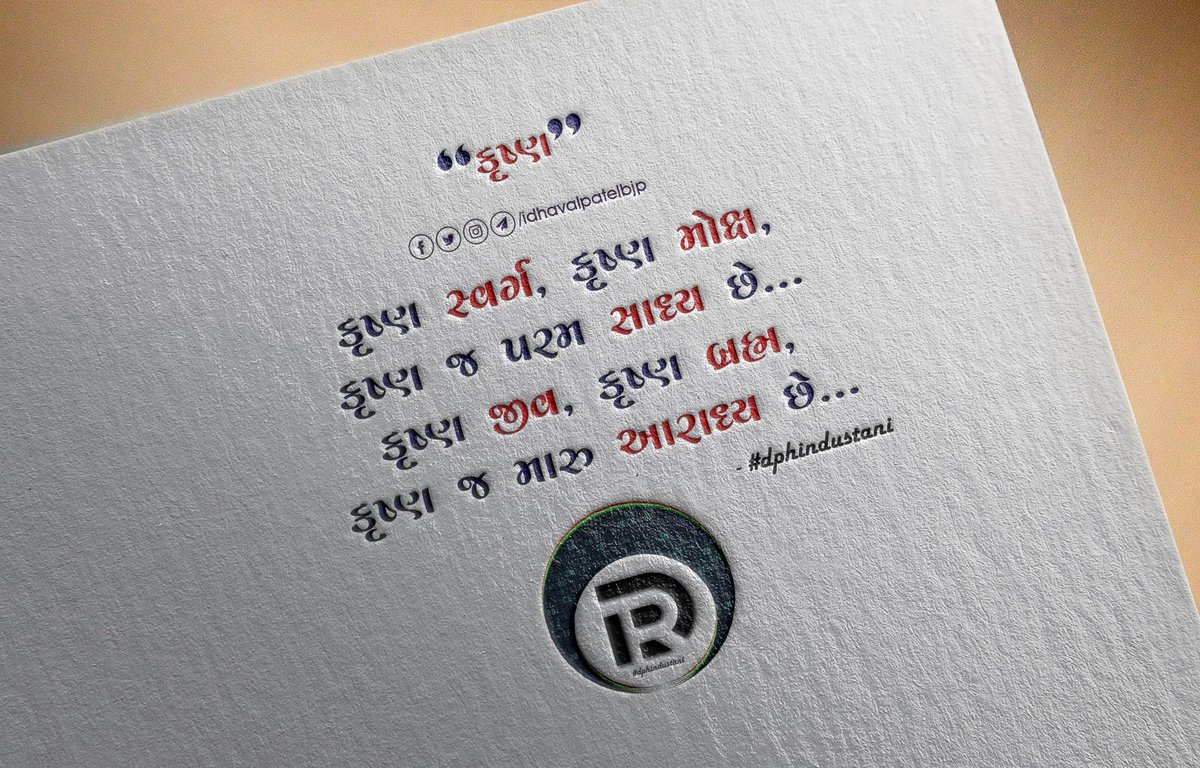 “કૃષ્ણ”
/idhavalpatelbjp
કૃષ્ણ સ્વર્ગ, કૃષ્ણ મોક્ષ,
કૃષ્ણ જ પરમ સાધ્ય છે...
કૃષ્ણ જીવ, કૃષ્ણ બ્રહ્મ,
કૃષ્ણ જ મારુ આરાધ્ય છે...
- #dphindustani
#dphindustani